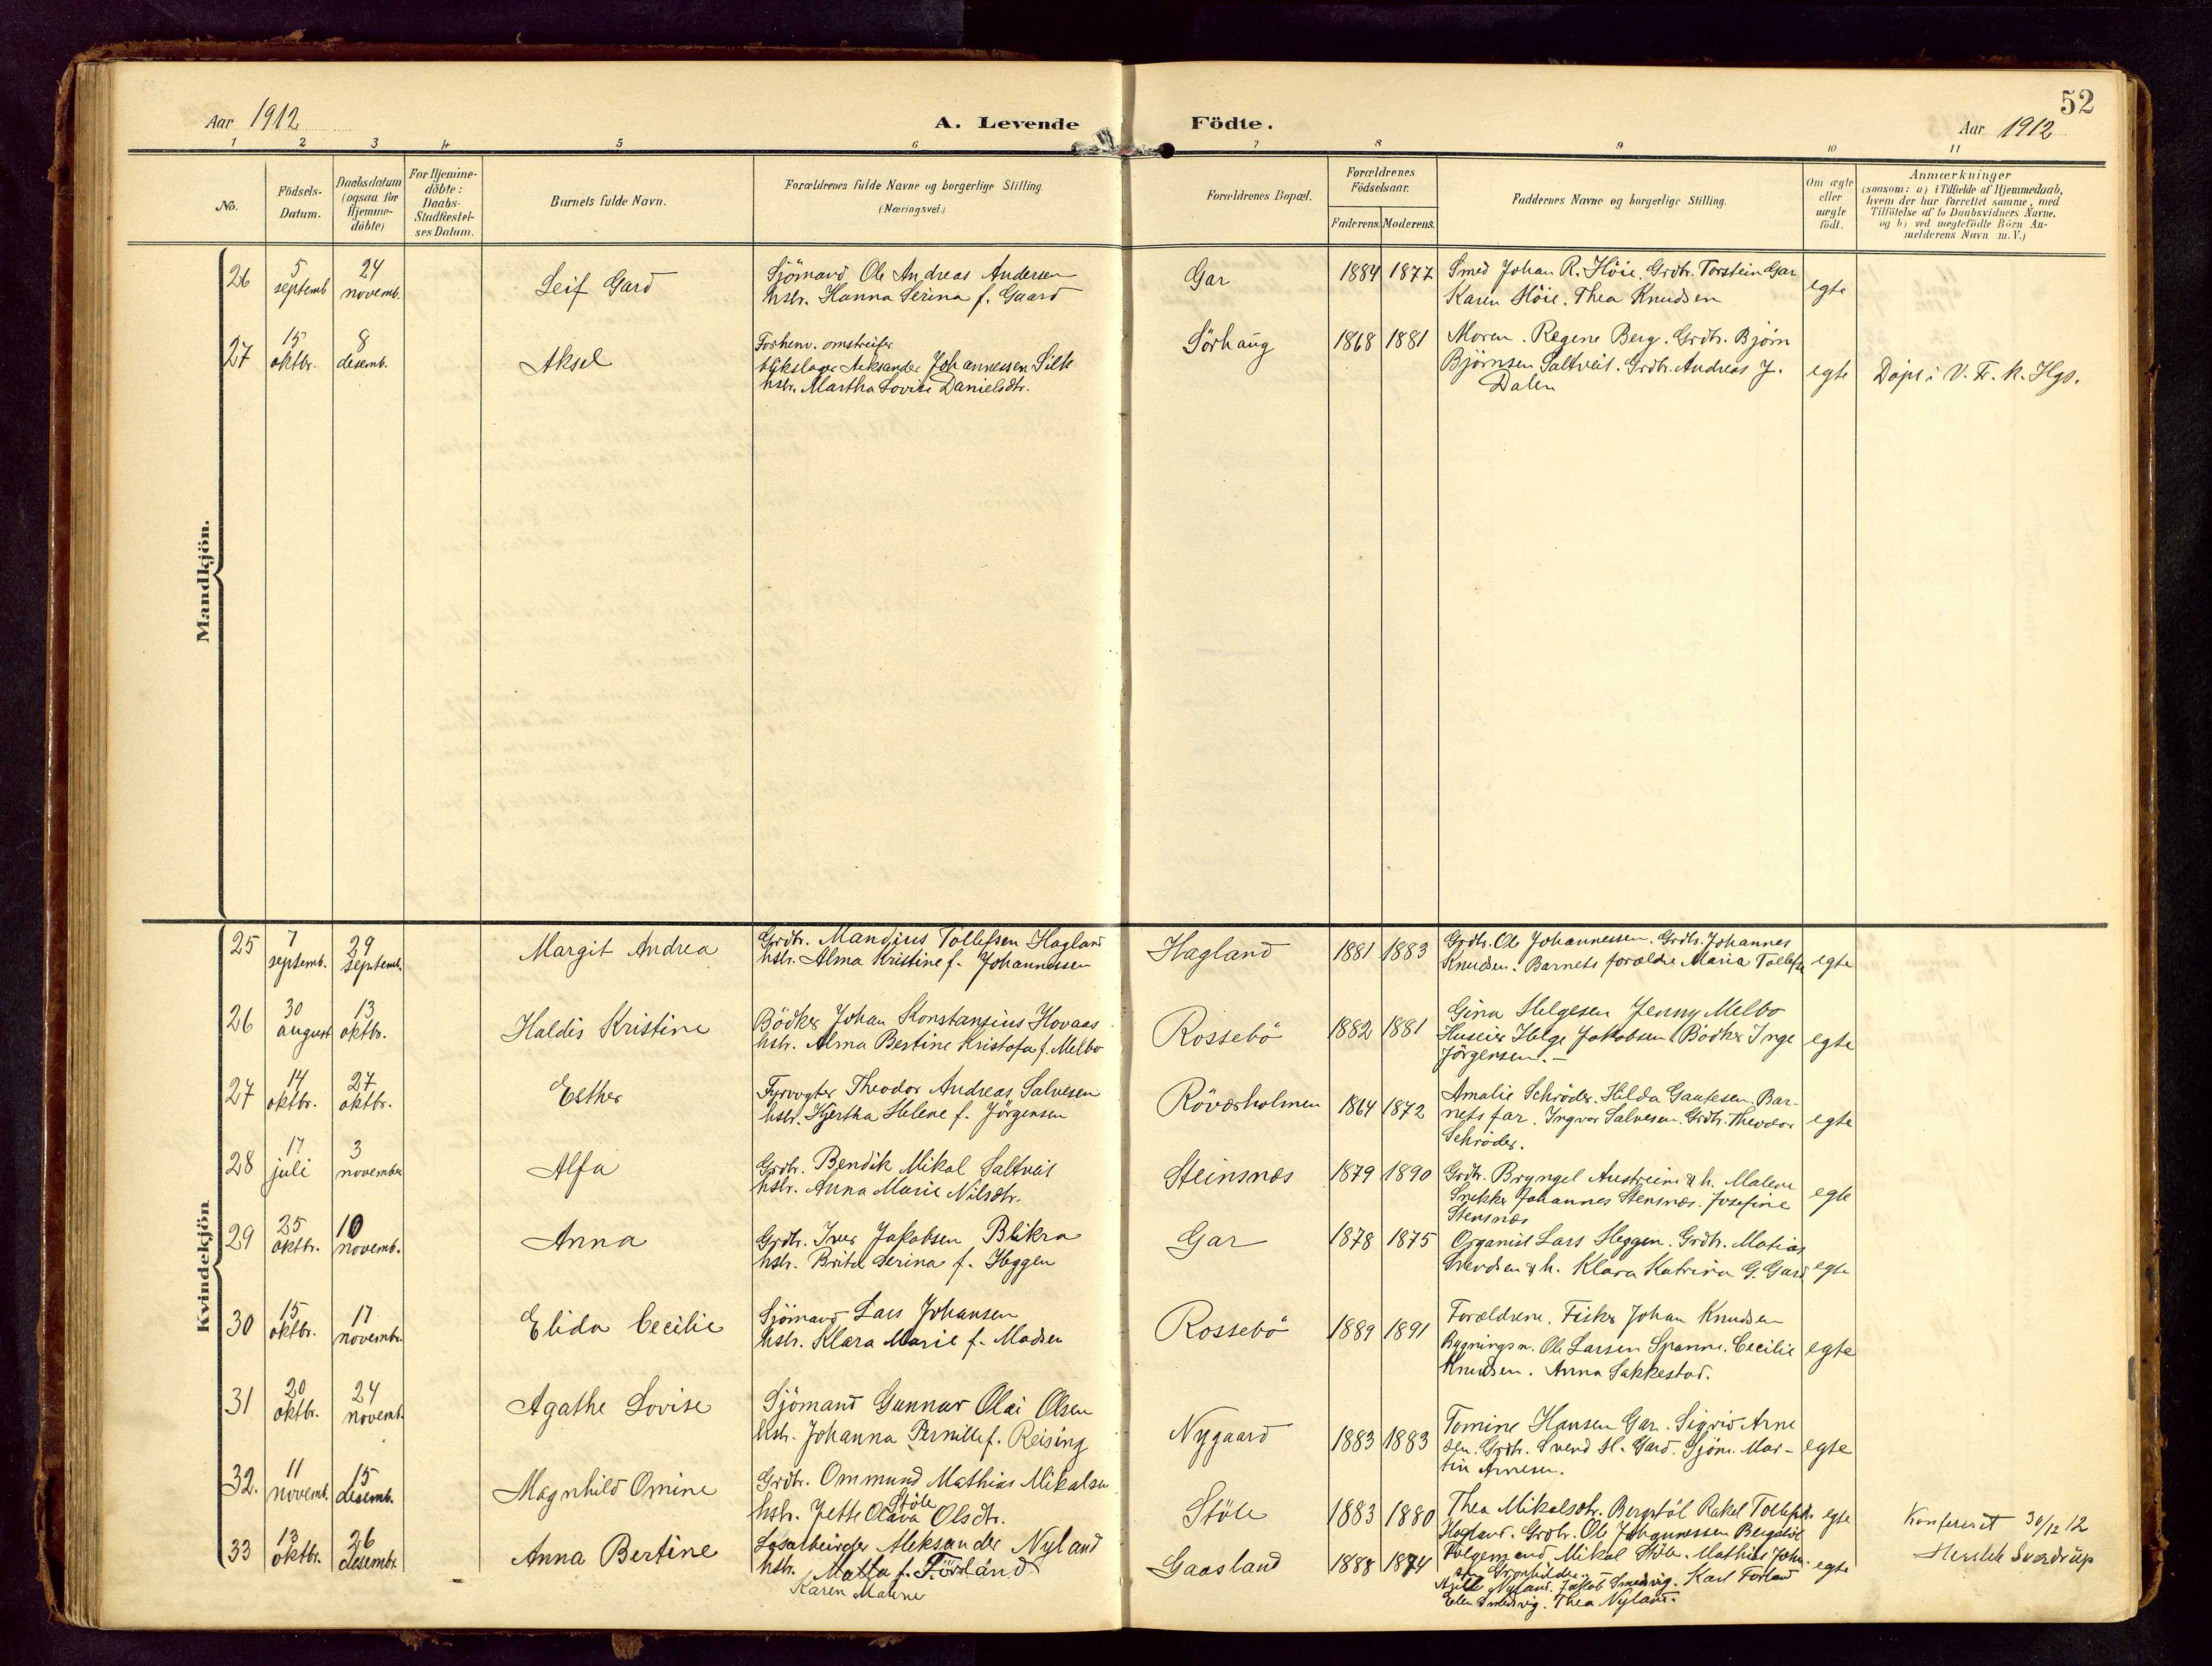 52
Aar 1912
A. Levende Födte.
Aar 1912
1 2 3 4 5 6 7 8 9 10 11
No.
Födsels-
Datum.
Daabsdatum
(ogsaa for
Hjemme-
döbte)
For Hjemme-
döbte:
Daabs-
Stadfæstel-
ses Datum.
Barnets fulde Navn.
Forældrenes fulde Navne og borgerlige Stilling.
(Næringsvei.)
Forældrenes Bopæl.
Forældrenes
Födselsaar.
Faderens. Moderens.
Faddernes Navne og borgerlige Stilling.
Om ægte
eller
uægte
födt.
Anmærkninger
(saasom: a) i Tilfælde af Hjemmedaab,
hvem der har forrettet samme, med
Tilföielse af to Daabsvidners Navne,
og b) ved uægtefödte Börn An-
melderens Navn m. V.)
Mandkjön.
26
5
septemb
24
novemb.
Leif Gard
Sjömand Ole Andreas Andersen
hstr. Hanna Serina f. Gaard
Gar
1884 1877
Smed Johan R. Höie. Grdbr. Torstein Gar
Karen Höie. Thea Knudsen
egte
27
15
oktbr.
8
desemb.
Aksel
Forhenv. omstreifer
blikslager Aleksander Johannessen Silk
hstr. Martha Lovise Danielsdtr.
Sörhaug
1868 1881
Moren. Regene Berg. Grdbr. Bjørn
Björnsen Saltveit. Grdbr. Andreas J.
Dalen
egte
Döpt i V. Fr. k. Hgs.
Kvindekjön
25
7
septemb.
29
septemb.
Margit Andrea
Grdbr. Mandius Tollefsen Hagland
hstr. Alma Kristine f. Johannessen
Hagland
1881 1883
Grdbr. Ole Johannessen. Grdbr. Johannes
Knudsen. Barnets forældre Maria Tollefs
egte
26
30
august
13
oktbr.
Haldis Kristine
Bödker Johan Konstansius Hovaas
hstr. Alma Bertine Kristofa f. Melbo
Rossebö
1882 1881
Gina Helgesen Jenny Melbo
Huseier Helge Jakobsen Bödker Inge
Jörgensen.-
egte
27
14
oktbr.
27
oktbr.
Esther
Fyrvogter Theodor Andreas Salvesen
hstr. Kjertha Helene f. Jörgensen
Röværholmen
1864 1872
Amalie Schröder. Hilda Gautesen. Bar-
nets far. Ingvar Salvesen. Grdbr. Theodor
Schröder.
egte
28
17
juli
3
november
Alfa
Grdbr. Bendik Mikal Saltveit
hstr. Anna Marie Nilsdtr.
Steinsnes
1879 1890
Grdbr. Bryngel Austreim & h. Malene
Snekker Johannes Stensnæs. Josefine
Stensnæs
egte
29
25
oktbr.
10
novemb.
Anna
Grdbr. Iver Jakobsen Blikra
hstr. Britel Serina f. Heggen
Gar
1878 1875
Organist Lars Heggen. Grdbr. Matias
Svendsen & h. Klara Katrina G. Gard
egte
30
15
oktbr.
17
novembr.
Elida Cecilie
Sjömand Lars Johansen
hstr. Klara Marie f. Madsen
Rossebö
1889 1891
Forældrene. Fisker Johan Knudsen
Bygningsm. Ole Larsen Spanne. Cecilie
Knudsen. Anna Sakkestad.
egte
31
20
oktbr.
24
novemb.
Agathe Lovise
Sjömand Gunnar Olai Olsen
hstr. Johanna Pernille f. Reising
Nygaard
1883 1883
Tomine Hansen Gar. Sigrid Arne
sen. Grdbr. Svend H. Gard. Sjöm. Mar-
tin Arnesen.
egte
32.
11
novemb.
15
desemb.
Magnhild Omine
Grdbr. Ommund Mathias Mikalsen
Stöle
hstr. Jette Olava Olsdtr.
Stöle
1883 1880
Thea Mikalsdtr. Bergstöl Rakel Tollefsdtr.
Hagland. Grdbr. Ole Johannessen Bergstöl
Fölgemand Mikal Stöle. Mathias John
egte
Konferert 30/12 12
Hersleb Sverdrup
33
13
oktbr.
26
desembr
Anna Bertine
Lösarbeider Aleksander Nyland
hstr. Malla f. Förland
Karen Malene
Gaasland
1888 1874
Nyland. Jakob Smedsvig. Karl Forland
Elen Smedsvig. Thea Nyland.
egte